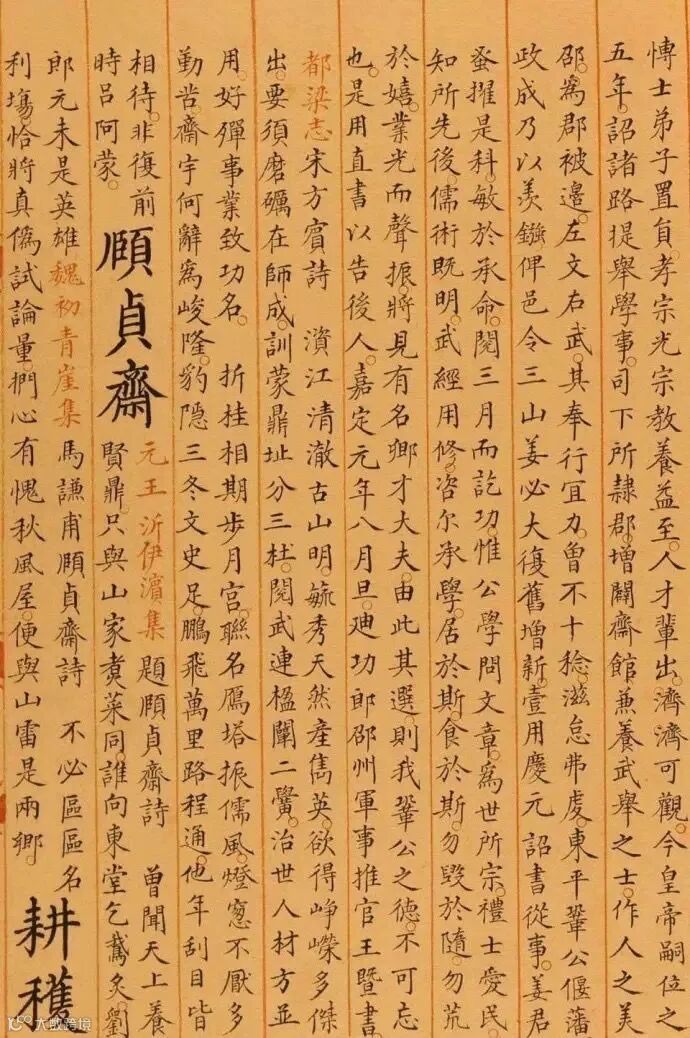 博士弟子置員。孝宗光宗教養益至。人才輩出。濟濟可觀。今皇帝嗣位之
五年。詔諸路提舉學事。司下所隸郡。增闢齋館。兼養武舉之士。作人之美
邵。爲郡被邊。左文右武。其奉行宜力。曾不十稔。滋怠弗虔。東平鞏公偃藩
政成乃以羨鏹俾邑令三山姜必大復舊增新。壹用慶元詔書從事。姜君
蚤擢是科。敏於承命。閱三月而訖功。惟公學問文章。爲世所宗。禮士愛民。
知所先後。儒術旣明。武經用修。咨尔承學。居於斯。食於斯。勿毀於隨。勿荒
於嬉。業光而聲振。將見有名卿才大夫。由此其選。則我鞏公之德。不可忘
也。是用直書以告後人。嘉定元年八月旦。迪功郎邵州軍事推官王曁書
都梁志宋方賓詩 澬江清澈古山明。毓秀天然產雋英。欲得崢嶸多傑
出。要須磨礪在師成。訓蒙鼎址分三杜。閱武連楹闡二黌。治世人材方並
用。好彈事業致功名。 折桂相期步月宮。聯名鴈塔振儒風。燈窓不厭多
勤苦。齋宇何辭爲峻隆。豹隱三冬文史足。鵬飛萬里路程通。他年刮目皆
相待。非復前
時呂阿蒙。
頤貞齋
元王沂伊濱集題頤貞齋詩 曾聞天上養
賢鼎。只與山家煑菜同。誰向東堂乞鵞炙。劉
郎元未是英雄。魏初青崖集 馬謙甫頤貞齋詩 不必區區名
利塲。恰將真僞試論量。捫心有愧秋風屋。便與山雷是兩鄉。
耕穫
大数跨境